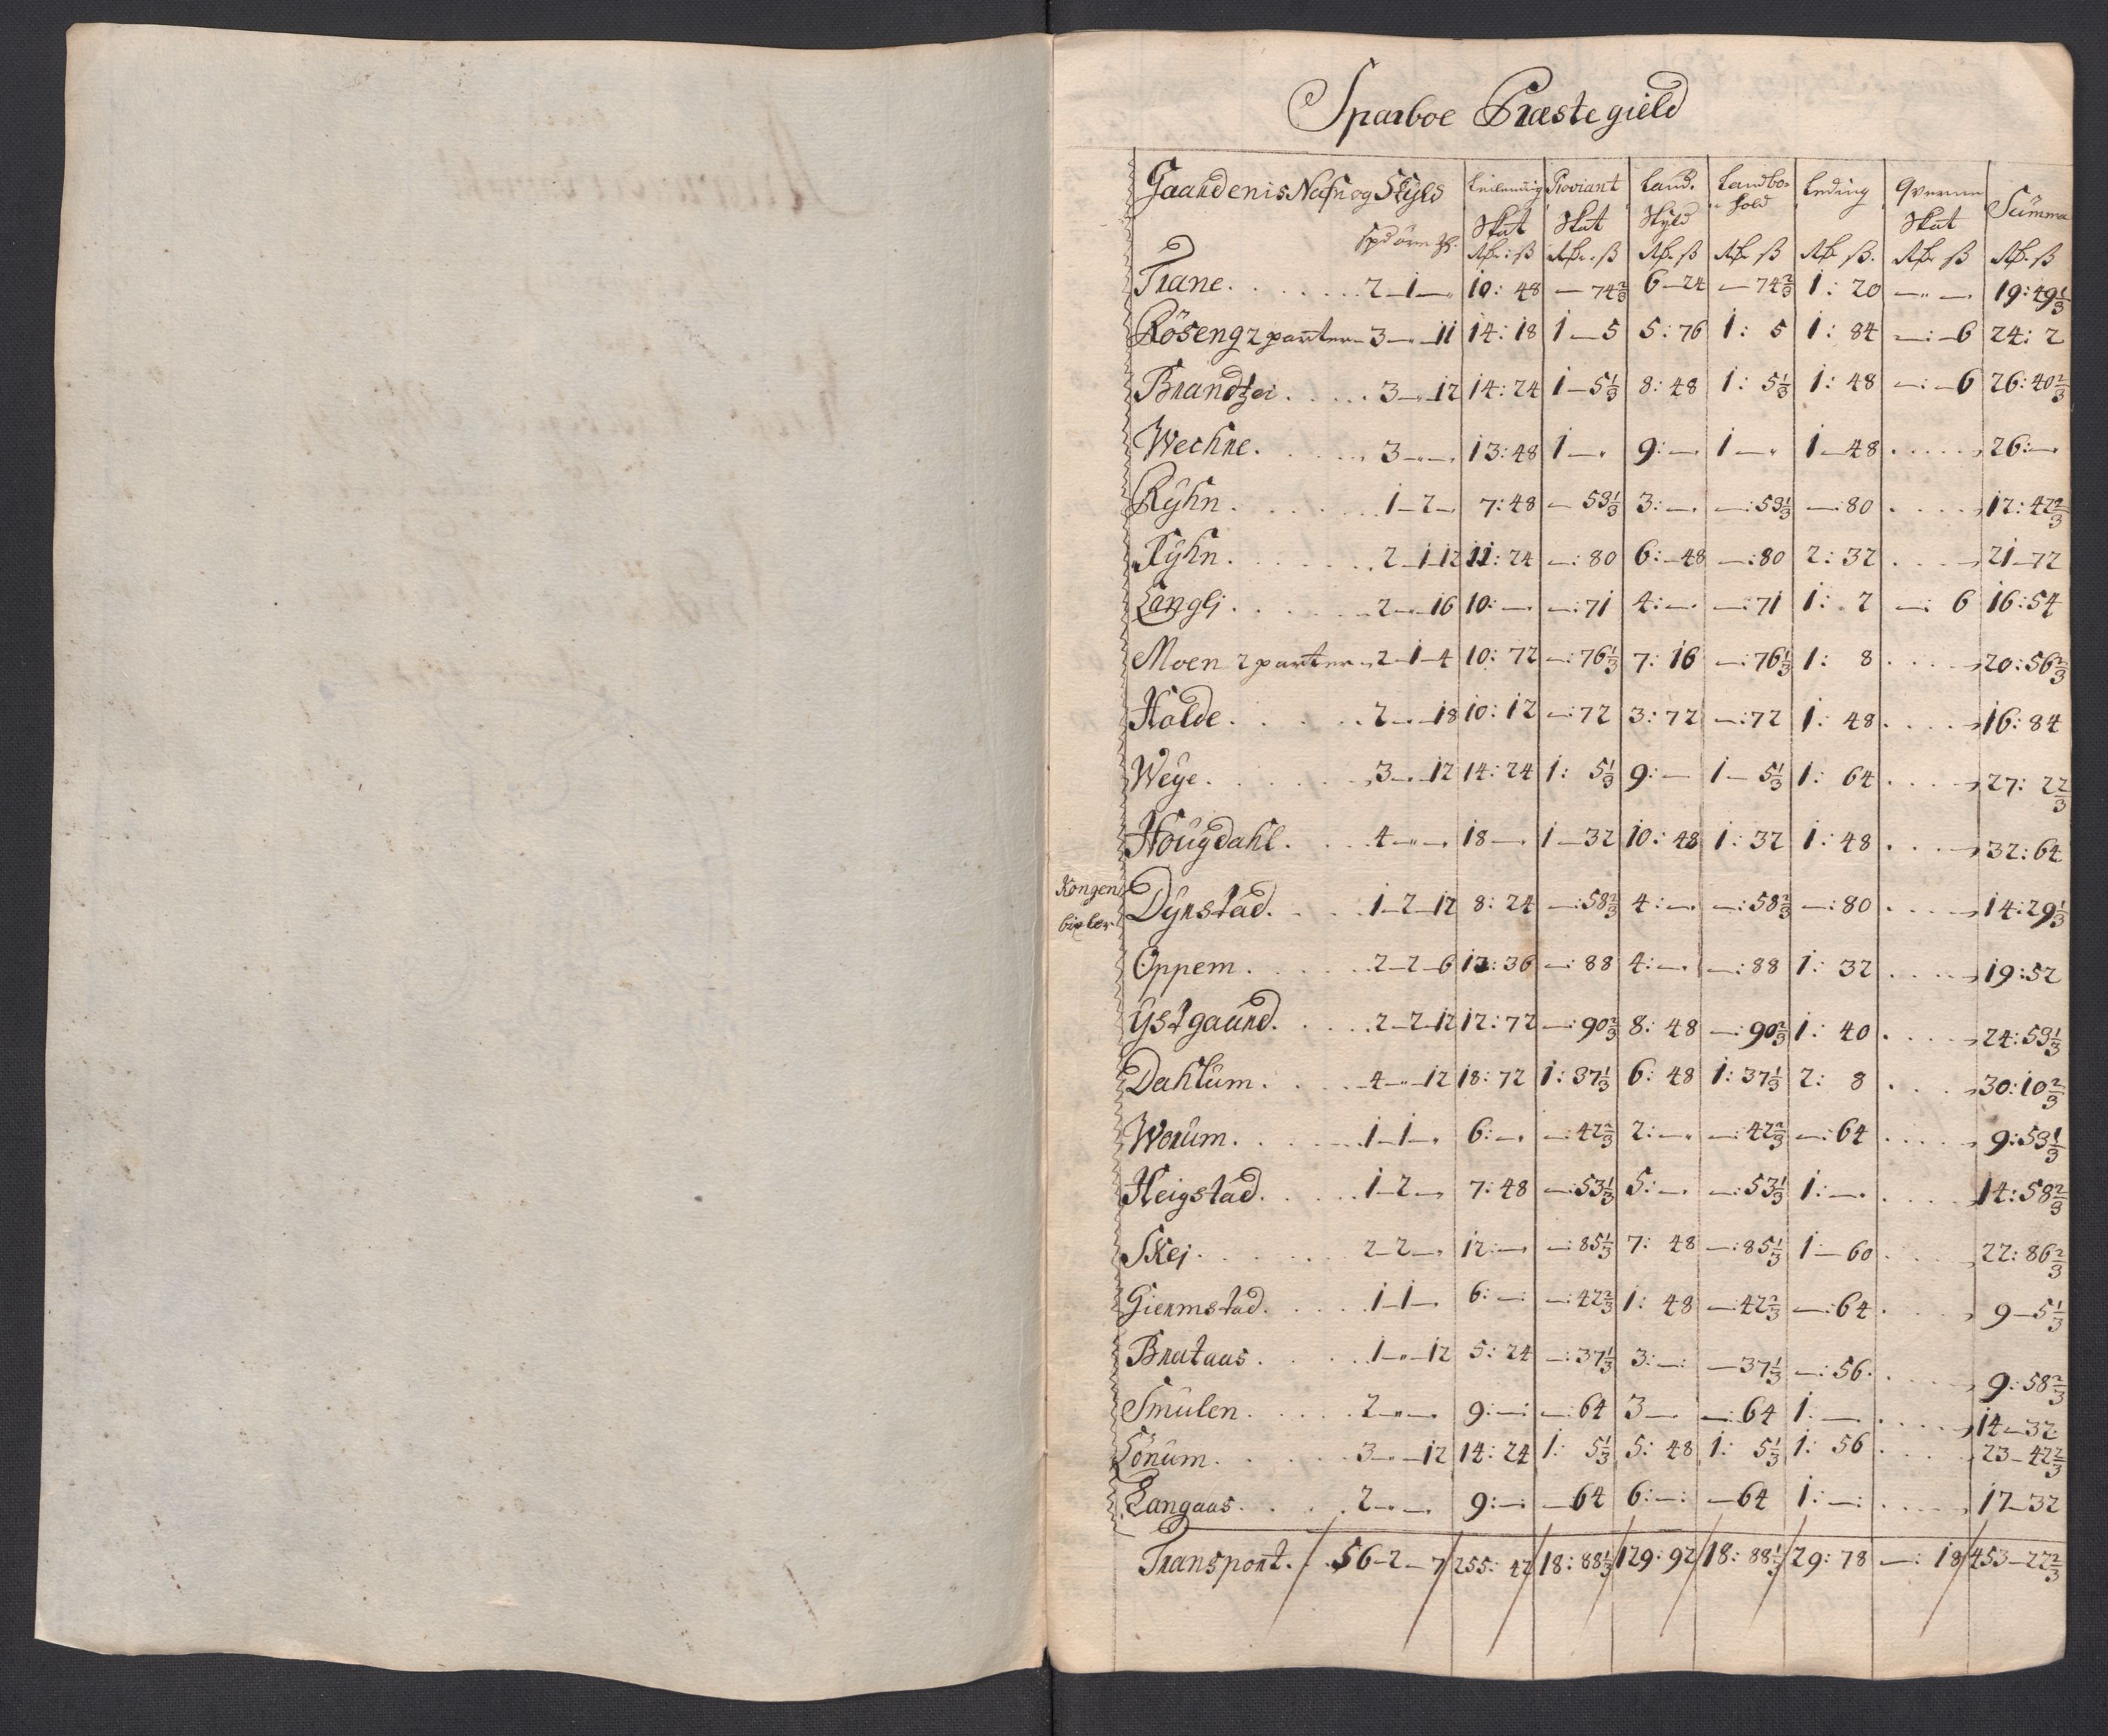 Sparboe Præstegield
Gaardenis Nafn og Skyld Leilending Proviant Land. Landbo- Leding Qverne Summa
Spd øre Skat Skat Skyld hold Skat
Rdr: ß Rdr. ß Rdr. ß Rdr ß Rdr ß. Rdr ß Rdr. ß
Trane . . . . . . . 2—1—„ 10: 48 — 74⅔ 6—24 — 74⅔ 1: 20 —„—. 19: 49⅓
Röseng 2 parter 3—„—11 14: 18 1—5 5: 76 1: 5 1: 84 —:—6 24: 2
Brandtzei . . . . . 3—„—12 14: 24 1—5⅓ 8: 48 1: 5⅓ 1: 48 —:—6 26: 40⅔
Wechre . . . . . . 3—„—. 13: 48 1—. 9:—. 1—„ 1—48 . . . . . 26:—.
Ryhn . . . . . . 1—2—„ 7: 48 — 53⅓ 3:—. —: 53⅓ —: 80 . . . . 12: 42⅔
Fyhn . . . . . . . 2—1—12 11: 24 —: 80 6:—48 —: 80 2: 32 . . . . 21—72
Langlj . . . . . . 2—„—16 10:—. —: 71 4:—. —: 71 1: 2 —: 6 16: 54
Moen 2 parter 2—1—4 10: 72 —: 76⅓ 7: 16 —: 76⅓ 1: 8 . . . . 20: 56⅔
Holde . . . . . . 2—„—18 10: 12 —: 72 3: 72 —: 72 1: 48 . . . . 16: 84
Weÿe . . . . . . . 3—„—12 14: 24 1: 5⅓ 9:— 1—5⅓ 1: 64 . . . . 27: 2⅔
Hougdahl . . . . 4—„—. 18—. 1—32 10: 48 1: 32 1: 48 . . . . 32: 64
Kongen
Dyrstad . . . . 1—2—12 8: 24 —: 58⅔ 4:—. —: 58⅔ —: 80 . . . . 14: 29⅓
Oppem . . . . . . 2—2—6 12: 36 —: 88 4:—. —: 88 1: 32 . . . . 19: 52
Ystgaard . . . . . 2—2—12 12: 72 —: 90⅔ 8: 48 —: 90⅔ 1: 40 . . . . 24: 53⅓
Dahlum . . . . . 4—„—12 18: 72 1: 37⅓ 6: 48 1: 37⅓ 2: 8 . . . . 30: 10⅔
Worum . . . . . . 1—1—. 6:—. —: 42⅔ 2:—„ —: 42⅔ —: 64 . . . . . 9: 53⅓
Heigstad . . . . . 1—2—„ 7: 48 —: 53⅓ 5:—. —: 53⅓ 1:—. . . . . 14: 58⅔
Skej . . . . . . . 2—2—. 12:—. —: 85⅓ 7: 48 —: 85⅓ 1—60 . . . . 22: 86⅔
Giermstad . . . . . 1—1—. 6:—: —: 42⅔ 1: 48 —: 42⅔ —: 64 . . . . 9—5⅓
Brataas . . . . . 1—„—12 5: 24 —: 37⅓ 3:—: —37⅓ —: 56 . . . . . 9: 58⅔
Smulen . . . . . 2—„—. 9:—: —: 64 3—. —: 64 1:—. . . . . 14—32
Lönum . . . . . . 3—„—12 14: 24 1: 5⅓ 5: 48 1: 5⅓ 1: 56 . . . . 23—42⅔
Langaas . . . . . 2—„—. 9:—: —64 6:—: —64 1:—: . . . . . 17—32
Transport. 56—2—7 255: 42 18: 88⅓ 129: 92 18: 88⅓ 29: 78 —: 18 453—22⅔